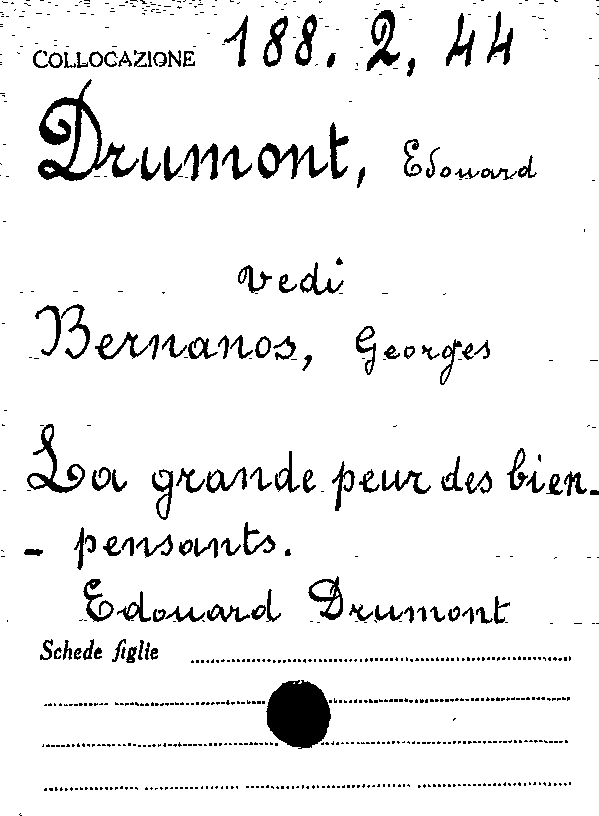 COLLOCAZIONE 188. 2, 44
Drumont, Edouard
vedi
Bernanos, Georges
La grande peur des bien-
- pensants.
Edouard Drumont
Schede figlie